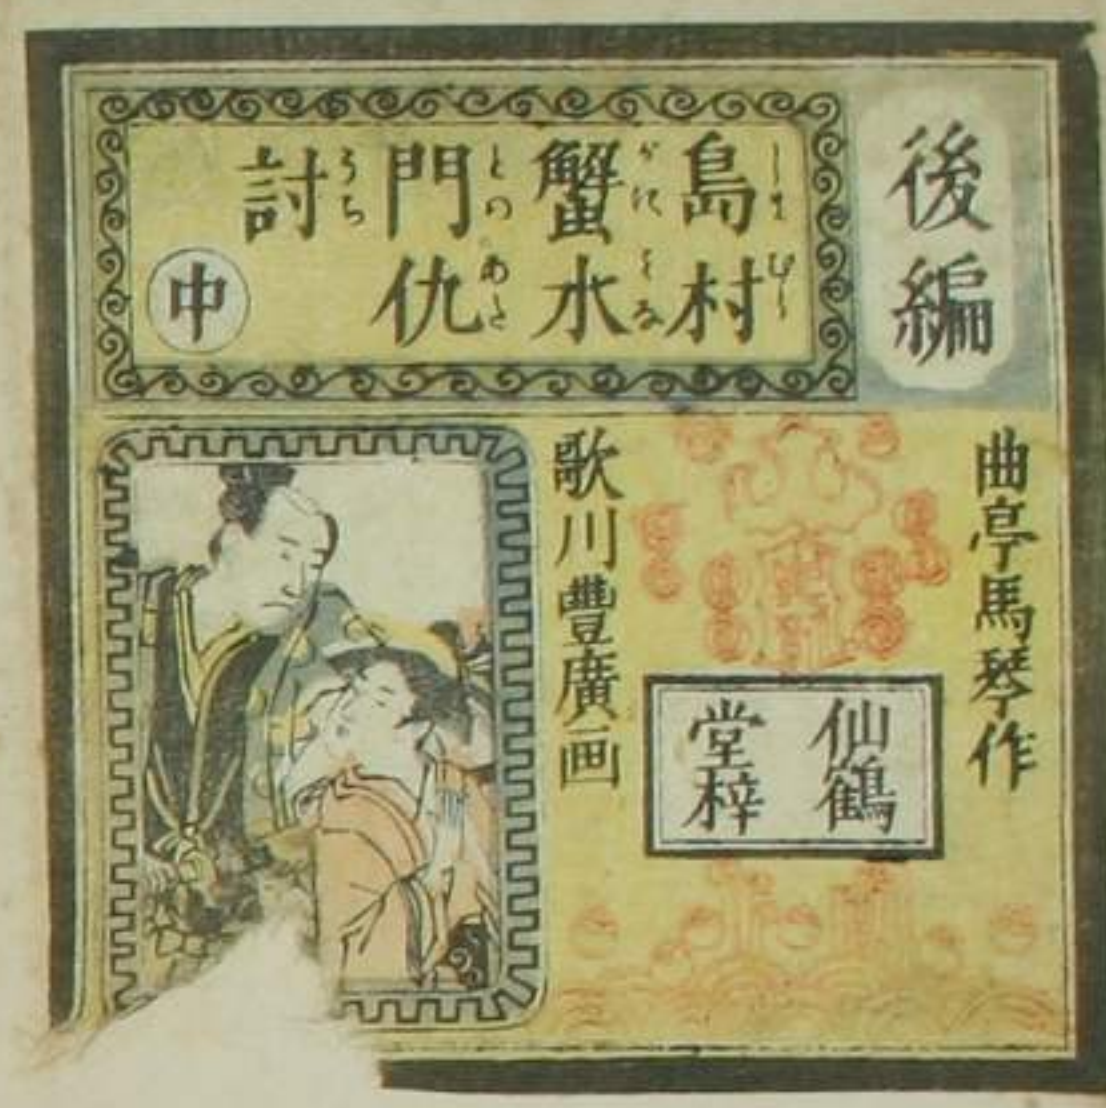 後編
島村
蟹水
門仇
討
しまむら
かにみな
とのあた
うち
中
曲亭馬琴作
仙鶴
堂梓
歌川豐廣画